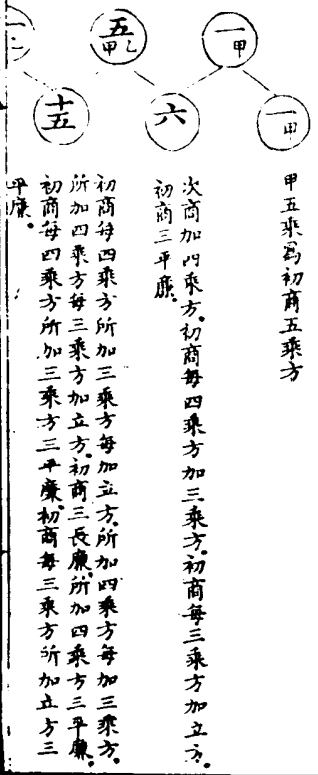 一甲
一甲
甲五乘爲初商五乘方
六
次商加四乘方。初商每四乘方加三乘方。初商每三乘方加立方。
初商三平廉。
五甲乙
十五
初商每四乘方所加三乘方每加立方。所加四乘方每加三乘方。
所加四乘方每三乘方加立方。初商三長廉。所加四乘方三平廉。
初商每四乘方所加三乘方三平廉。初商每三乘方所加立方三
平廉。